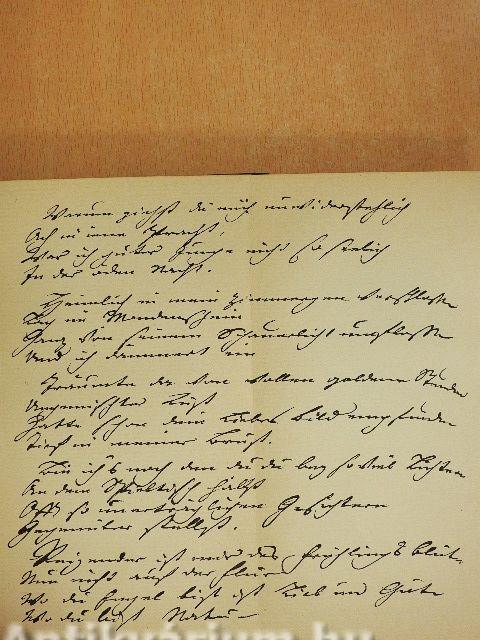 Warum ziehst du mich unwiderstehlich
Ach in iene Pracht,
War ich guter Junge nicht so seelig
In der öden Nacht.
Heimlich in mein Zimmergen verschlossen
Lag im Mondenschein
Ganz von seinem Schauerlicht umflossen
Und ich dämmert ein
Träumte da von vollen goldenen Stunden
Ungemischter Lust
Hatte schon dein liebes Bild empfunden
Tief in meiner Brust.
Bin ich's noch den du bey so viel Lichtern
An dem Spieltisch hältst
Offt so unerträglichen Gesichtern
Gegenüber stellst.
Reizender ist mir des Frühlings Blüte
Nun nicht auf der Flur
Wo du Engel bist ist Lieb und Güte
Wo du bist Natur
Antikvárium.hu